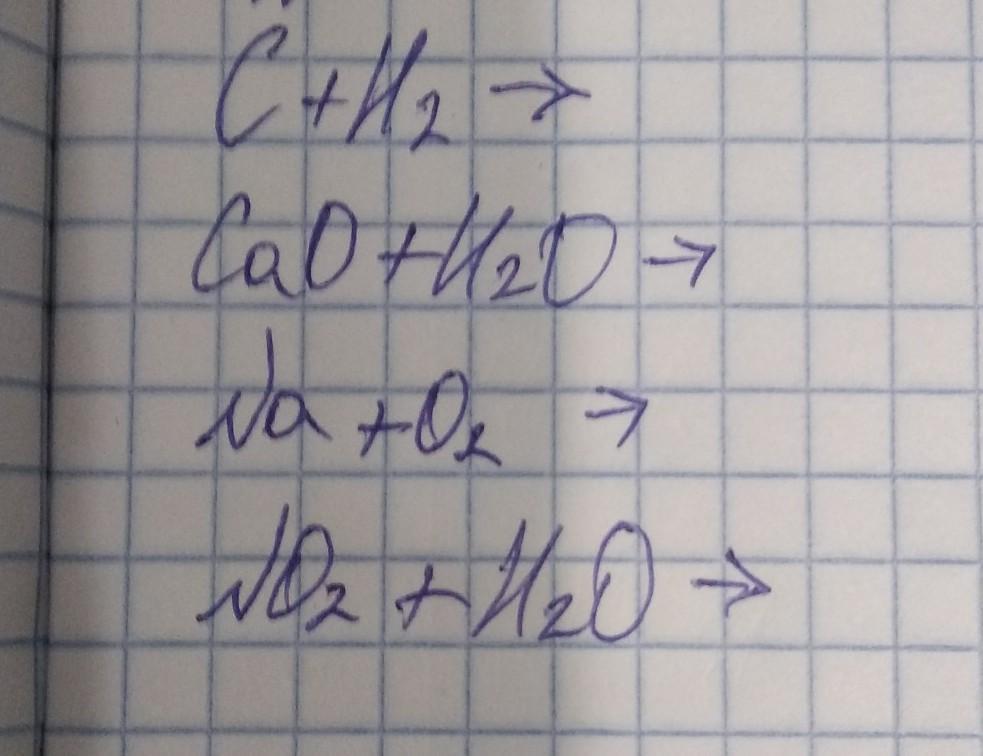 C + H₂ →
CaO + H₂O →
Na + O₂ →
NO₂ + H₂O →